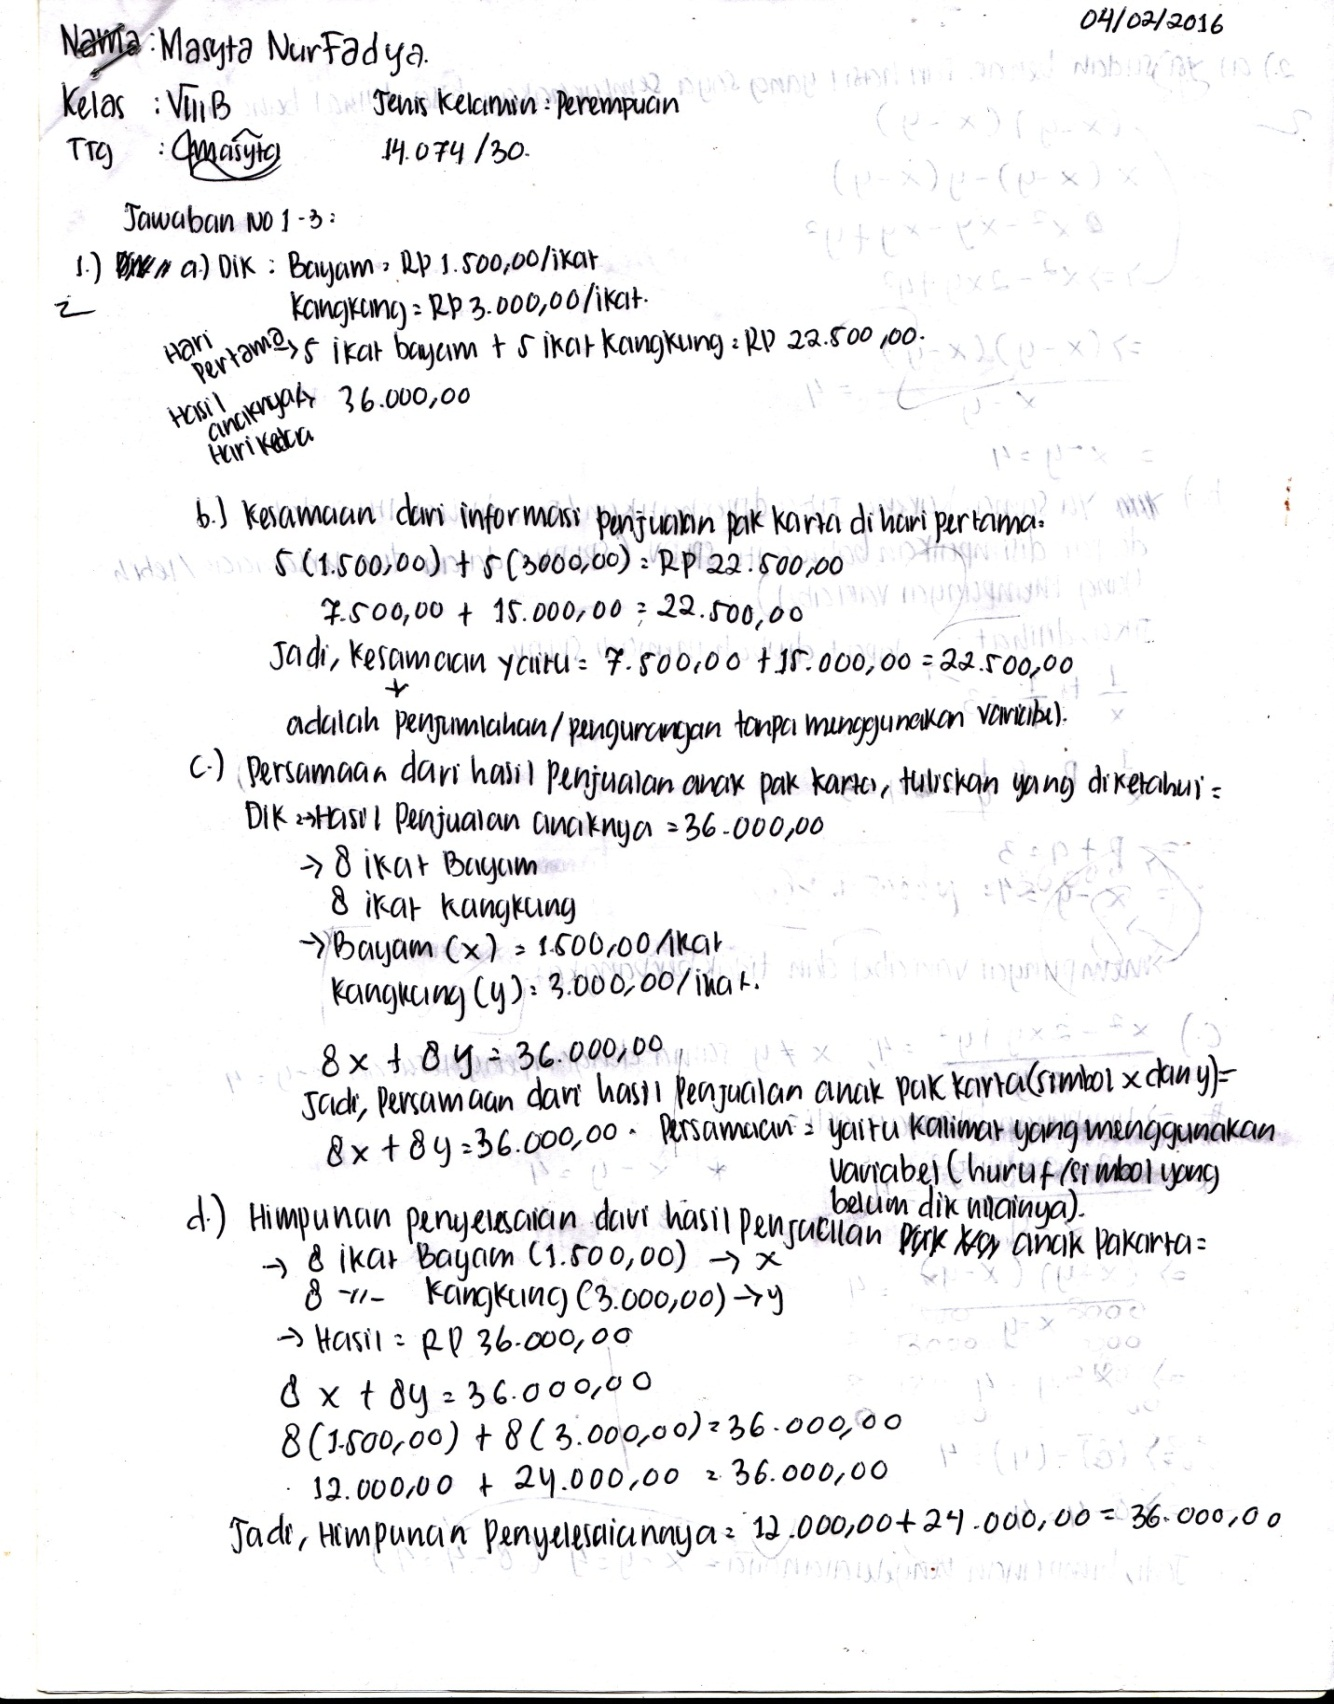 04/02/2016
Nama : Masyta NurFadya.
Kelas : VIII B Jenis Kelamin : Perempuan
TTg : masyta 14.074/30.
Jawaban No 1-3 :
1.) a.) Dik : Bayam = Rp 1.500,00/ikat
2
Kangkung = Rp 3.000,00/ikat.
Hari Pertama → 5 ikat bayam + 5 ikat Kangkung = Rp 22.500,00.
Hasil anaknya → 36.000,00
Hari kedua
b.) Kesamaan dari informasi penjualan pak karta di hari pertama =
5 (1.500,00) + 5 (3000,00) = Rp 22.500,00
7.500,00 + 15.000,00 = 22.500,00
Jadi, kesamaan yaitu = 7.500,00 + 15.000,00 = 22.500,00
adalah penjumlahan/pengurangan tanpa menggunakan variabel.
c.) Persamaan dari hasil penjualan anak pak karta, tuliskan yang diketahui =
Dik → Hasil Penjualan anaknya = 36.000,00
→ 8 ikat Bayam
8 ikat kangkung
→ Bayam (x) = 1.500,00/ikat
Kangkung (y) = 3.000,00/ikat.
8x + 8y = 36.000,00
Jadi, Persamaan dari hasil Penjualan anak pak karta (simbol x dan y) =
8x + 8y = 36.000,00. Persamaan = yaitu kalimat yang menggunakan
variabel (huruf/simbol yang
belum dik nilainya).
d.) Himpunan penyelesaian dari hasil penjualan anak Pakarta =
→ 8 ikat Bayam (1.500,00) → x
8 -"- Kangkung (3.000,00) → y
→ Hasil = Rp 36.000,00
8 x + 8y = 36.000,00
8 (1.500,00) + 8 (3.000,00) = 36.000,00
12.000,00 + 24.000,00 = 36.000,00
Jadi, Himpunan Penyelesaiannya = 12.000,00 + 24.000,00 = 36.000,00